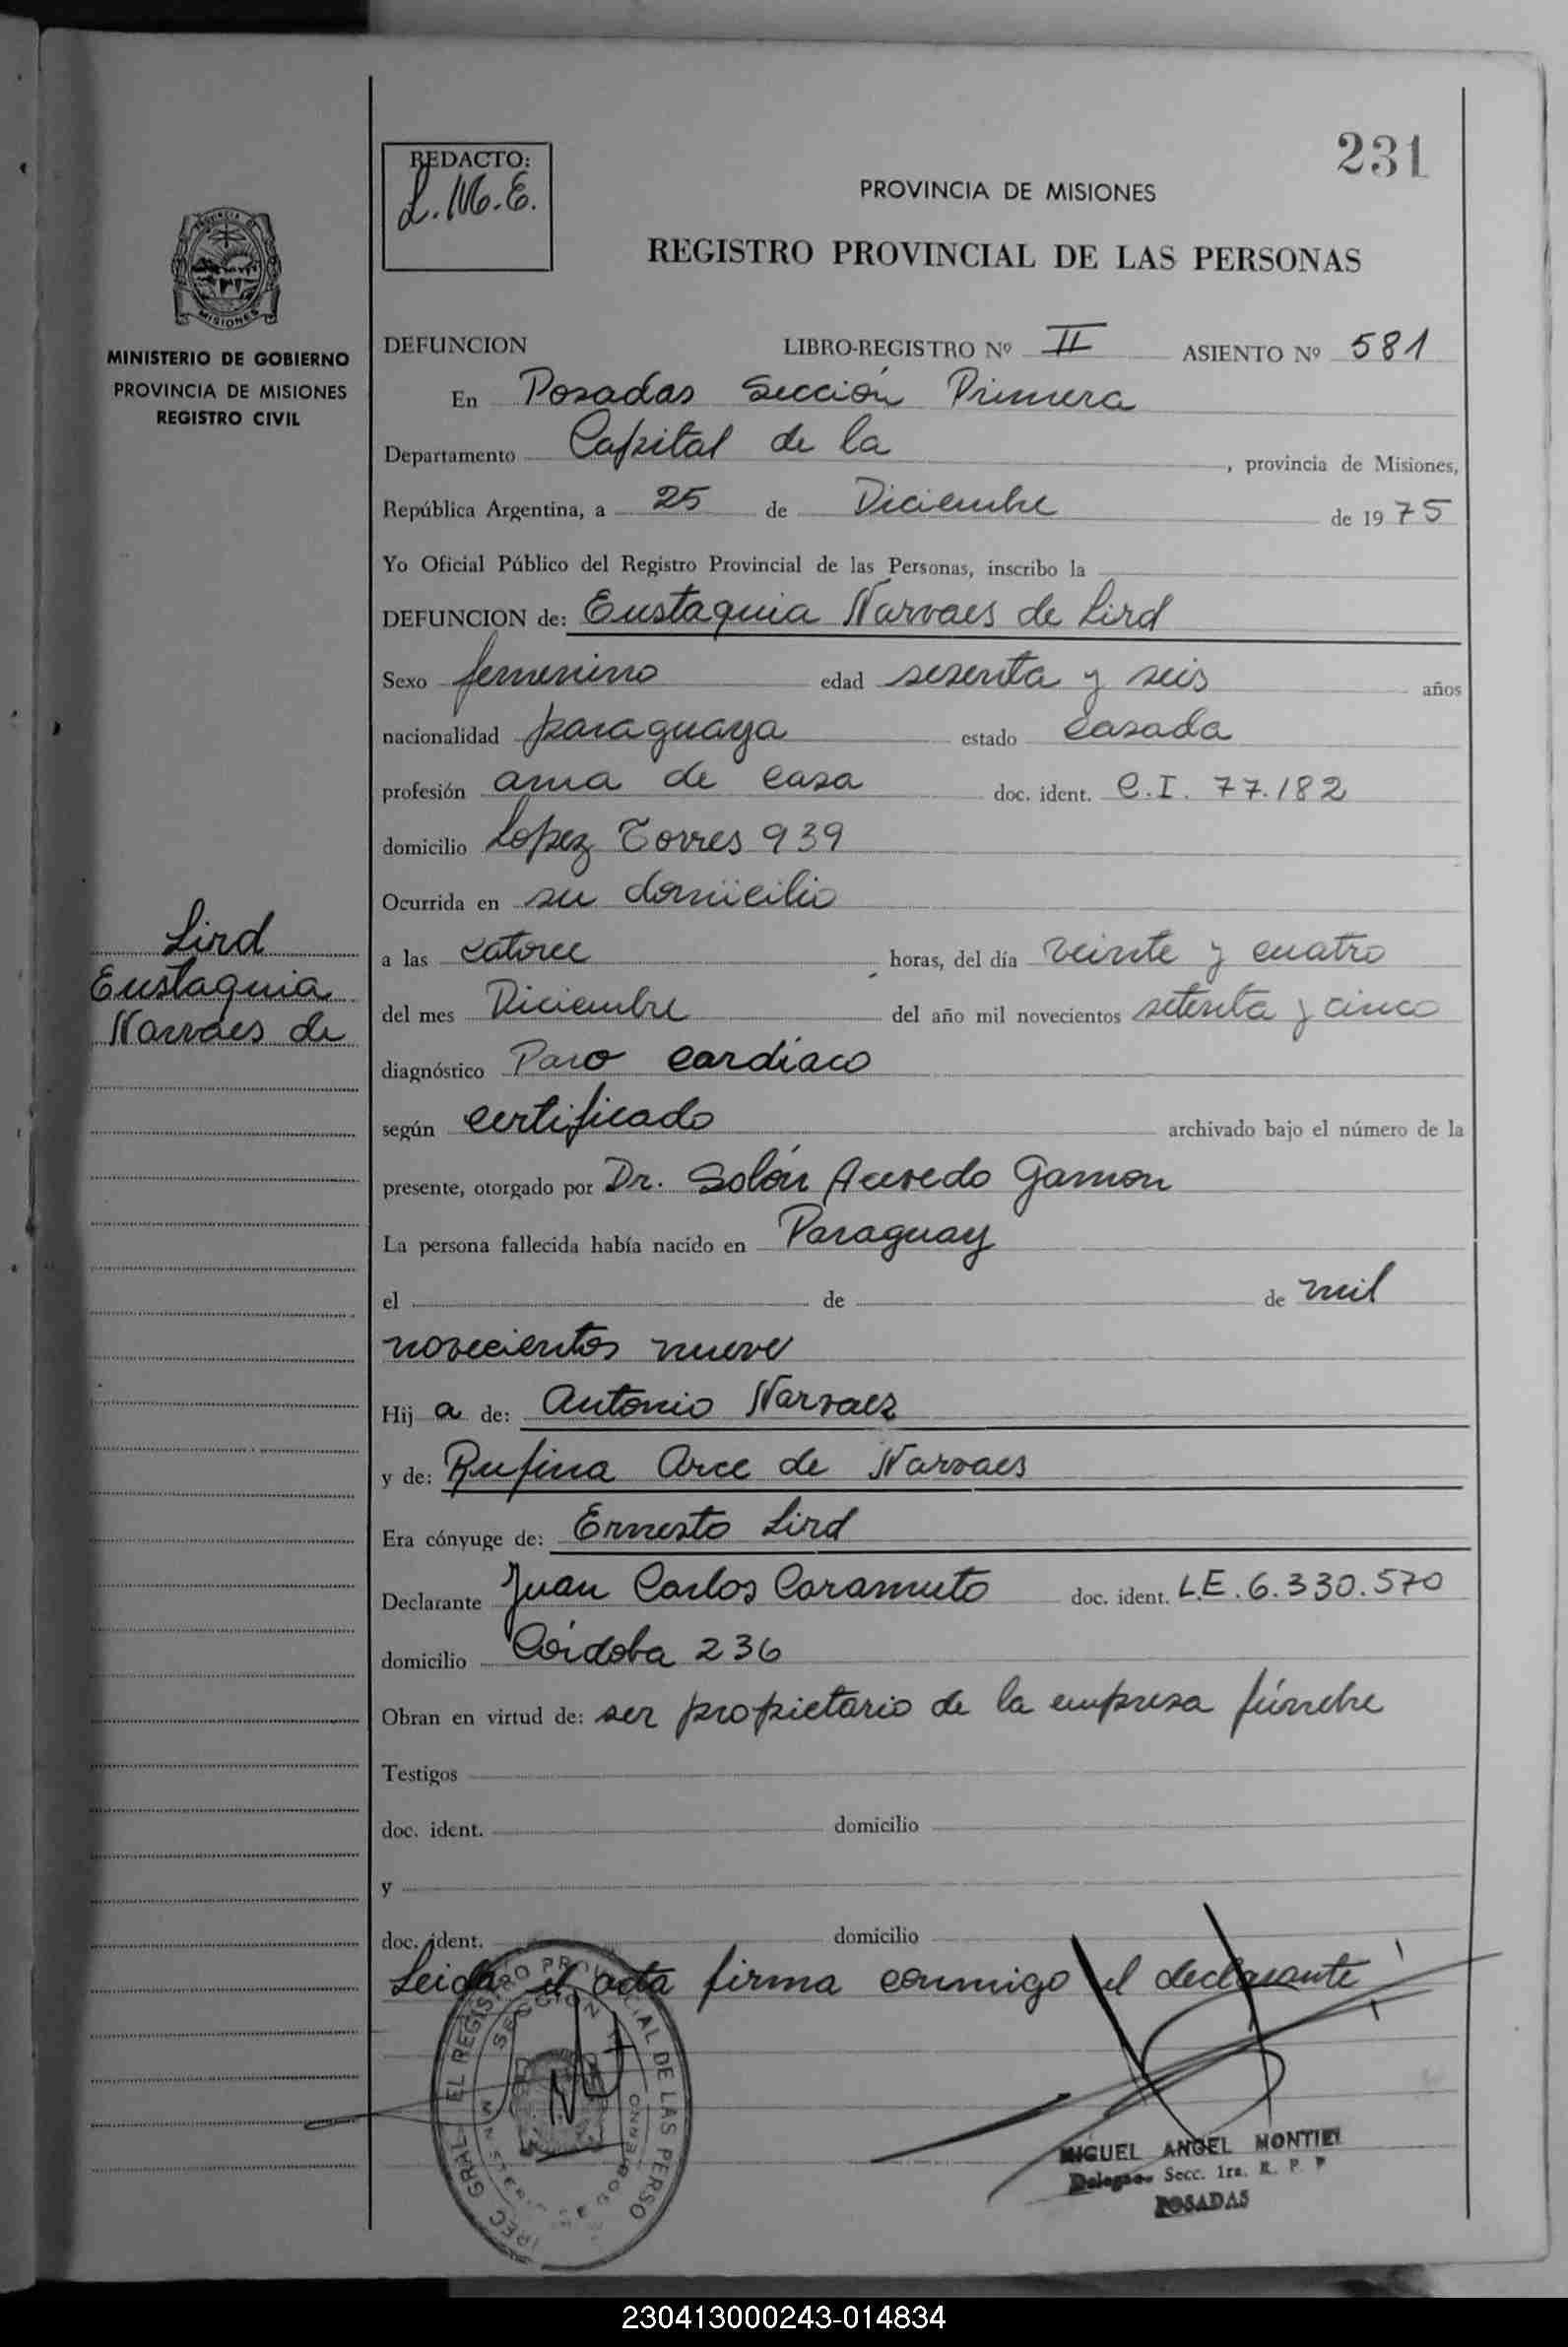 231
REDACTO:
L.M.E.
PROVINCIA DE MISIONES
REGISTRO PROVINCIAL DE LAS PERSONAS
MISIONES
MINISTERIO DE GOBIERNO
PROVINCIA DE MISIONES
REGISTRO CIVIL
Lird
Eustaquia
Narvaes de
DEFUNCION LIBRO-REGISTRO Nº II ASIENTO Nº 581
En Posadas Sección Primera
Departamento Capital de la , provincia de Misiones,
República Argentina, a 25 de Diciembre de 1975
Yo Oficial Público del Registro Provincial de las Personas, inscribo la
DEFUNCION de: Eustaquia Narvaes de Lird
Sexo femenino edad sesenta y seis años
nacionalidad paraguaya estado casada
profesión ama de casa doc. ident. C.I. 77.182
domicilio Lopez Torres 939
Ocurrida en su domicilio
a las catorce horas, del día veinte y cuatro
del mes Diciembre del año mil novecientos setenta y cinco
diagnóstico Paro cardíaco
según certificado archivado bajo el número de la
presente, otorgado por Dr. Solón Acevedo Gamon
La persona fallecida había nacido en Paraguay
el de de mil
novecientos nueve
Hij a de: Antonio Narvaez
y de: Rufina Arce de Narvaes
Era cónyuge de: Ernesto Lird
Declarante Juan Carlos Caramuto doc. ident. L.E. 6.330.570
domicilio Córdoba 236
Obran en virtud de: ser propietario de la empresa fúnebre
Testigos
doc. ident. domicilio
y
doc. ident. domicilio
Leida el acta firma conmigo el declarante
MIGUEL ANGEL MONTIEL
Secc. 1ra. R. P. P
POSADAS
230413000243-014834